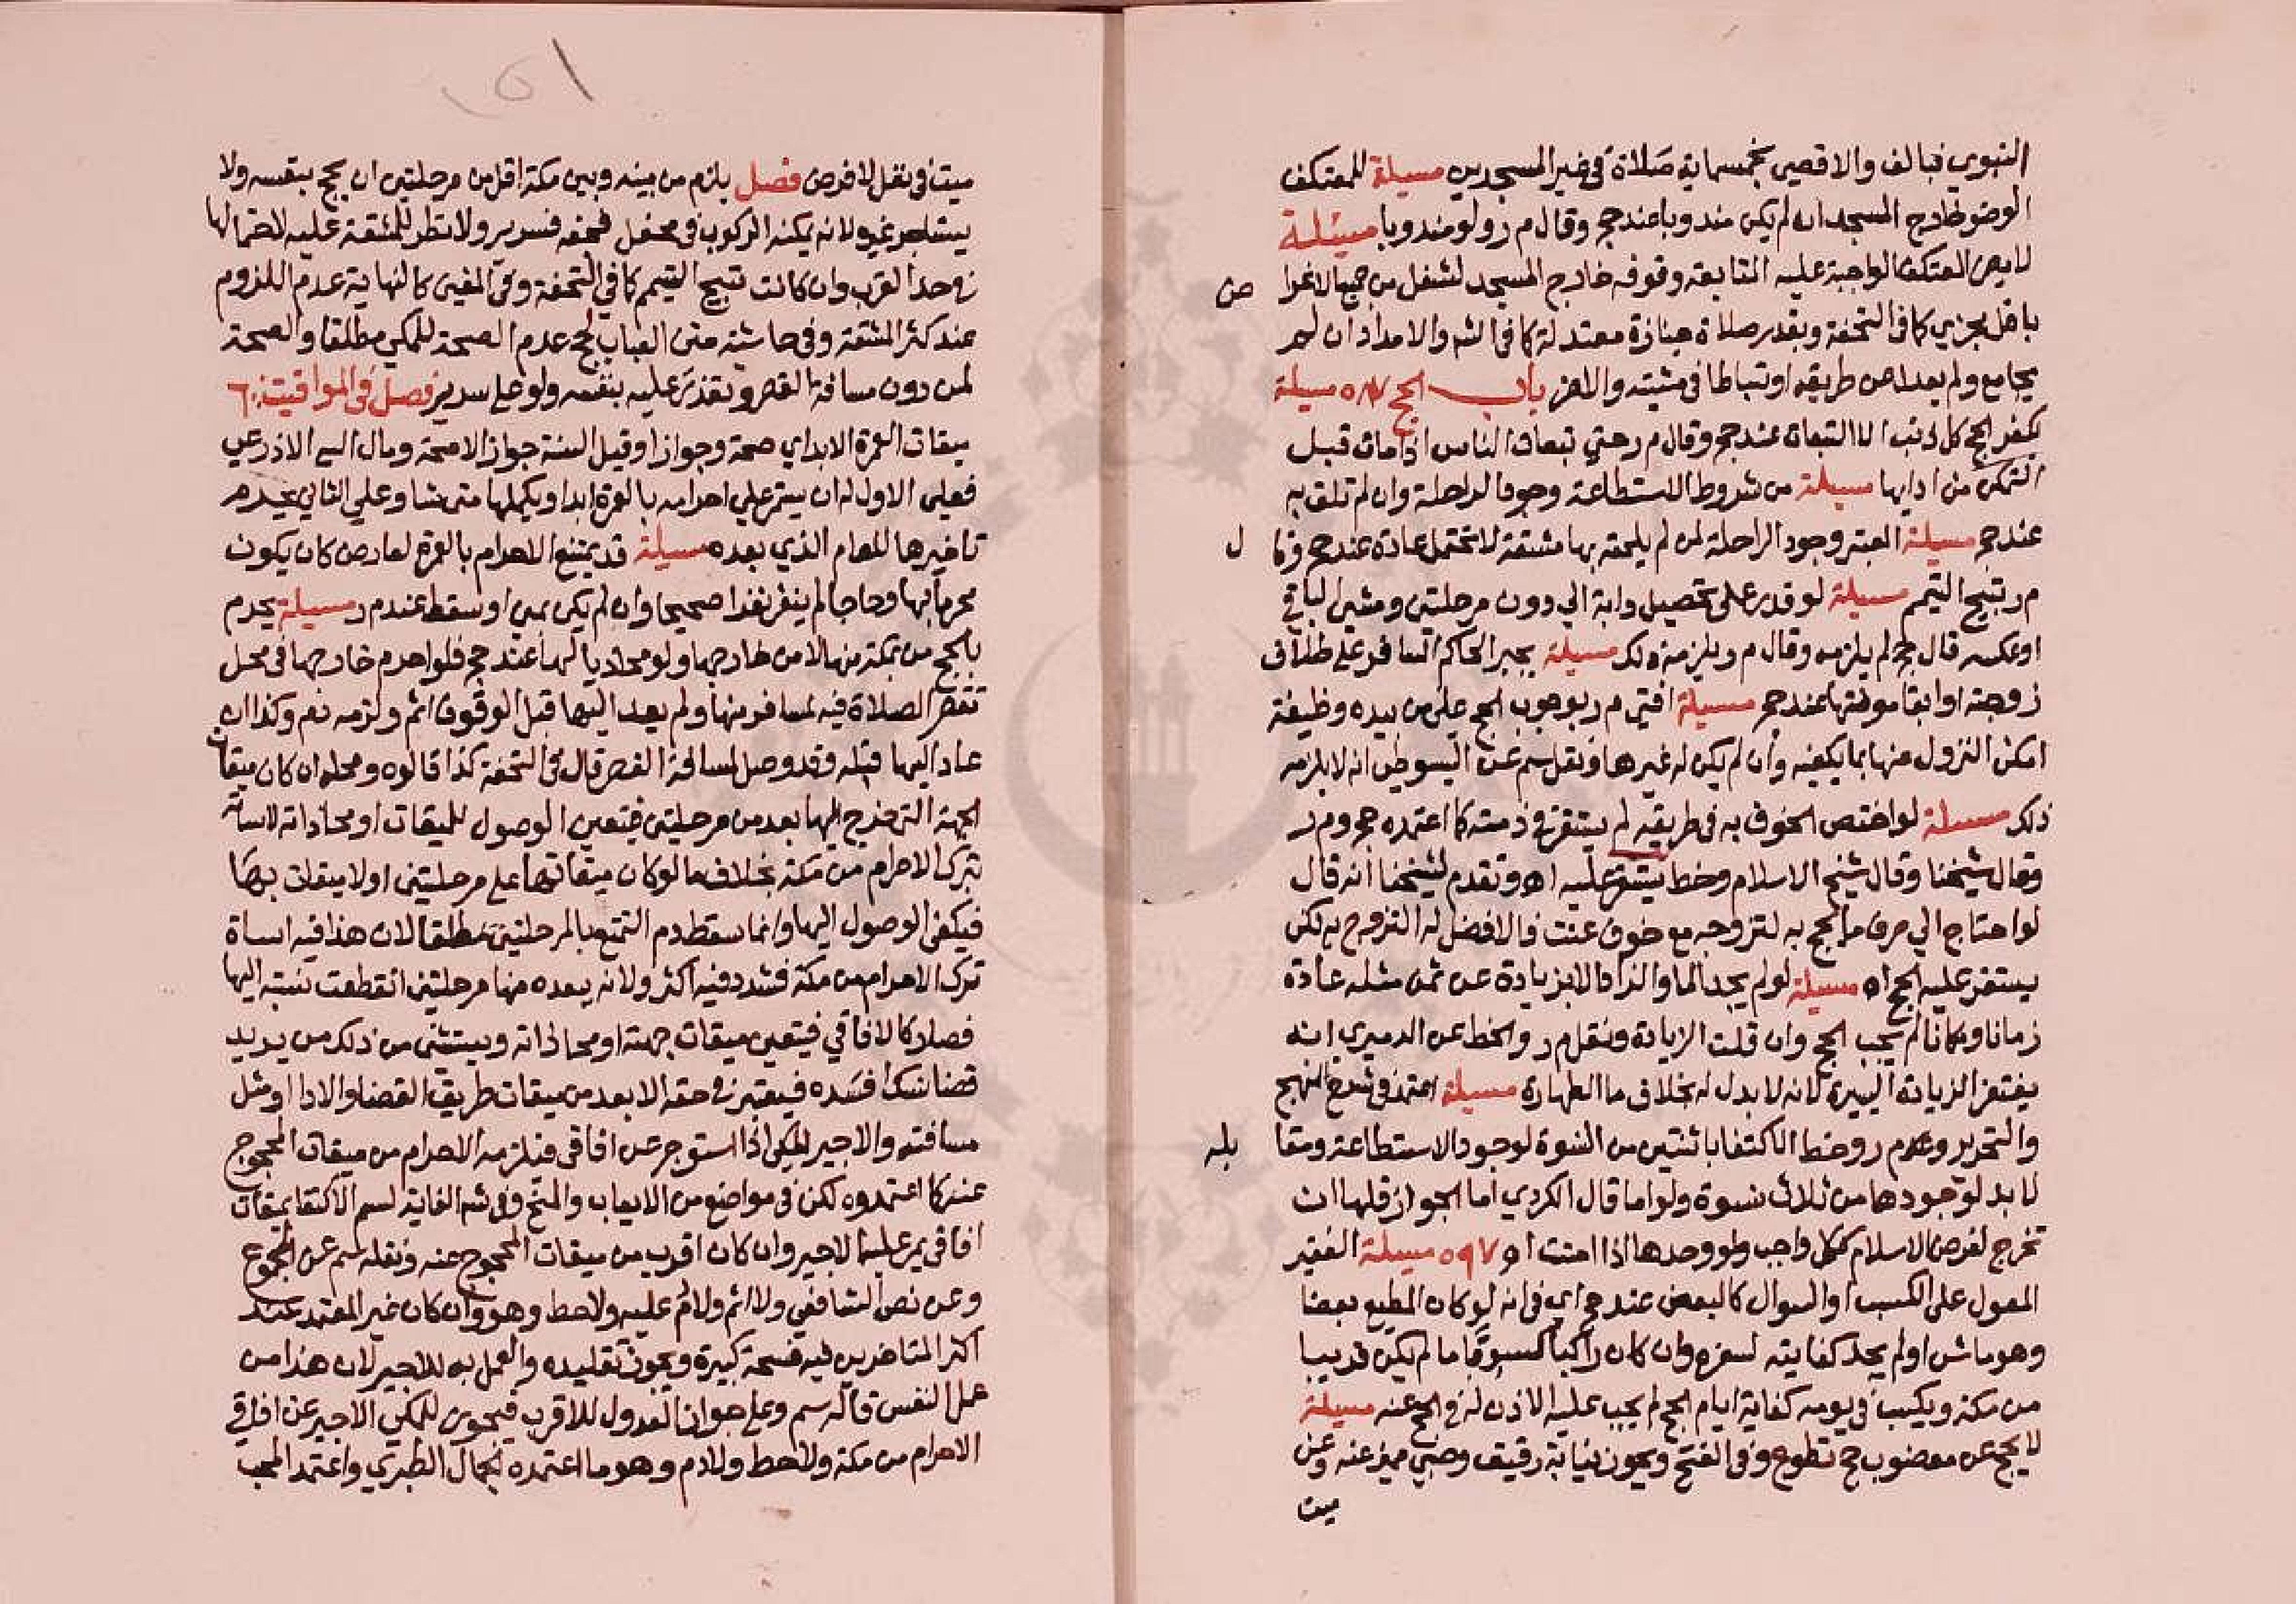 النبوي فبالف والاقصى بخمسماية صلاة في غير المسجدين مسيلة للمعتكف
الوضو خارج المسجد ان لم يكن مندوبا عند حج وقال م ر ولو مندوبا مسئلة
لا يضر المعتكف الواجبة عليه المتابعة وقوفه خارج المسجد لشغل من جميع الاغرا ض
باقل يجزي كما في التحفة وبقدر صلاة جنازة معتدلة كما في الشم والامداد ان لم
يجامع ولم يعدل عن طريقه او تباطا في مشيته والا ضر باب الحج ٥٨٧ مسيلة
يكفر الحج كل ذنب الا التبعات عند حج وقال م ر حتي تبعات الناس اذا مات قبل
التمكن من ادايها مسيلة من شروط الاستطاعة وجود الراحلة وان لم تلق به
عند حج مسيلة المعتبر وجود الراحلة لمن لم يلحقه بها مشقة لا تحتمل عادة عند حج وقا ل
م ر تبيح التيمم مسيلة لو قدر على تحصيل دابة الي دون مرحلتين ومشى الباقي
او عكسه قال حج لم يلزمه وقال م ر يلزمه ذلك مسيلة يجبر الحاكم المسافر على طلاق
زوجته او ابقا مونتها عند حج مسيلة افتى م ر بوجوب الحج على من بيده وظيفة
امكن النزول منها بما يكفيه وان لم يكن له غيرها ونقل سم عن السيوطي انه لا يلزمه
ذلك مسيلة لو اختص الخوف به في طريقه لم يستقر في ذمته كما اعتمده حج و م ر
وقال شيخنا وقال شيخ الاسلام وخط يستقر عليه اه وتقدم لشيخنا انه قال
لو احتاج الي صرف ما للحج به لتزوجه مع خوف عنت فالافضل له التزوج به لكن
يستقر عليه الحج اه مسيلة لو لم يجد الما والزاد الا بزيادة عن ثمن مثله عادة
زمانا ومكانا لم يجب الحج وان قلت الزيادة ونقل م ر والخط عن الدميري انه
يغتفر الزيادة اليسيرة لانه لا بدل له بخلاف ما الطهارة مسيلة اعتمد في شرح المنهج
والتحرير و م ر وخط الاكتفا باثنتين من النسوة لوجود الاستطاعة ومقا بله
لا بد لوجودها من ثلاث نسوة ولو اما قال الكردي اما الجواز فلها ان
تخرج لفرض الاسلام ككل واجب ولو وحدها اذا امنت اه ٥٩٧ مسيلة الفقير
المعول على الكسب او السوال كالبعض عند حج اي في انه لو كان المطيع بعضا
وهو ماش او لم يجد كفايته لسفره وان كان راكبا كسوقا ما لم يكن قريبا
من مكة ويكسب في يومه كفاية ايام الحج لم يجب عليه الاذن له في الحج عنه مسيلة
لا يحج عن معضوب حج تطوع وفي الفتح ويجوز نيابة رقيق وصبي مميز عنه وعن
ميت
ميت في نفل لا فرض فصل يلزم من بينه وبين مكة اقل من مرحلتين ان يحج بنفسه ولا
يستاجر غيره لانه يمكنه الركوب في محمل فمحفة فسرير ولا نظر للمشقة عليه لاحتمالها
في حد القرب وان كانت تبيح التيمم كما في التحفة وفي المغني كالنهاية عدم اللزوم
عند كثر المشقة وفي حاشية متن العباب لحج عدم الصحة للمكي مطلقا والصحة
لمن دون مسافة القصر وتعذر عليه بنفسه ولو على سرير فصل في المواقيت ٦٠
ميقات العمرة الابدي صحة وجوازا وقيل السنة جوازا لا صحة ومال اليه الاذرعي
فعلى الاول له ان يستمر علي احرامه بالعمرة ابدا ويكملها متى شا وعلي الثاني يحرم
تاخيرها للعام الذي بعده مسيلة قد يمتنع الاحرام بالعمرة لعارض كان يكون
محرما بها وحاجا لم ينفر نفرا صحيحا وان لم يكن بمنى او سقط عند م ر مسيلة يحرم
بالحج من بمكة منها لا من خارجها ولو محاديا لها عند حج فلو احرم خارجها في محل
تقصر الصلاة فيه لمسافر منها ولم يعد اليها قبل الوقوف اثم ولزمه دم وكذا ان
عاد اليها قبله وقد وصل لمسافة القصر قال في التحفة كذا قالوه ومحله ان كان ميقات
الجهة التي خرج اليها ابعد من مرحلتين فيتعين الوصول للميقات او محاذاته لاساته
بترك الاحرام من مكة بخلاف ما لو كان ميقاتها على مرحلتين او لا ميقات بها
فيكفي الوصول اليها وانما سقط دم التمتع بالمرحلتين مطلقا لان هذا فيه اساة
ترك الاحرام من مكة فشدد فيه اكثر ولانه ببعده منها مرحلتين انقطعت نسبته اليها
فصار كالافاقي فيتعين ميقات جهته او محاذاته ويستثنى من ذلك من يريد
قضا نسك افسده فيعتبر في حقه الابعد من ميقات طريق القضا والادا او مثل
مسافته والاجير المكي اذا استوجر عن افاقي فيلزمه الاحرام من ميقات المحجوج
عنه كما اعتمدوه لكن في مواضع من الايعاب والمنح وفي شم الغاية لسم الاكتفا بميقات
افاقي يمر عليه الاجير وان كان اقرب من ميقات المحجوج عنه ونقله سم عن المجموع
وعن نص الشافعي ولا اثم ولا دم عليه ولا حط وهو وان كان غير المعتمد عند
اكثر المتاخرين فيه فسحة كبيرة ويجوز تقليده والعمل به للاجير لان هذا من
عمل النفس قاله سم وعلى جواز العدول للاقرب فيجوز للمكي الاجير عن افاقي
الاحرام من مكة ولا حط ولا دم وهو ما اعتمده الجمال الطبري واعتمد المحب